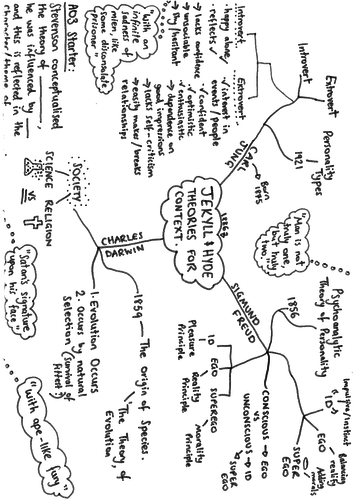 JEKYLL & HYDE
1886
THEORIES FOR
CONTEXT.
CARL
JUNG
Born
1875
Personality
Types
1921
Extrovert
Introvert
Introvert
· happy alone,
reflects
→ lacks confidence
→ unsociable
→ shy / hesitant
Extrovert
✓ interest in
events/people
✓ confident
✓ optimistic
✓ enthusiastic
→ dependence on
good impressions
→ lacks self-criticism
→ easily makes/breaks
relationships
"With an
infinite
sadness of
mien, like
some disconsolate
prisoner"
AO3 Starter:
Stevenson conceptualised
the theory of ______,
he was influenced by ______
and this is reflected in the
character/theme of...
"Man is not
truly one,
but truly
two,"
SIGMUND
FREUD
Psychoanalytic
Theory of Personality
1856
Impulsive/Instinct
ID
EGO
Balancing
reality
SUPER
EGO
Adding
morals
CONSCIOUS → EGO
VS
UNCONSCIOUS → ID
SUPER
EGO
ID
Pleasure
Principle
EGO
Reality
Principle
SUPEREGO
morality
Principle
CHARLES
DARWIN
1859 — The Origin of Species.
The Theory of
Evolution,
1. Evolution Occurs
2. Occurs by natural
Selection (survival of
fittest)
SOCIETY
SCIENCE vs RELIGION
"Satan's signature
upon his face"
"with ape-like fury"